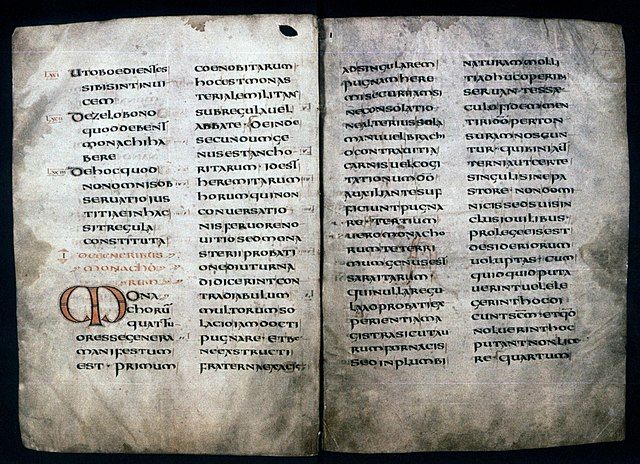 UTOBOEDIENTES
SIBISINTINUI
CEM
DEZELOBONO
QUODDEBENT
MONACHIHA
BERE
DEHOCQUOD
NONOMNISOB
SERUATIOIUS
TITIAEINHAC
SITREGULA
CONSTITUTA
I DEGENERIBUS
MONACHO
RUM
MONA
CHORU̅
QUATTU
ORESSEGENERA
MANIFESTUM
EST · PRIMUM
COENOBITARUM
HOCESTMONAS
TERIALEMILITANS
SUBREGULAUEL
ABBATE · DEINDE
SECUNDUMGE
NUSESTANCHO
RITARUM · IDEST
HEREMITARUM
HORUMQUINON
CONUERSATIO
NISFERUORENO
UITIOSEDMONA
STERIIPROBATI
ONEDIUTURNA
DIDICERINTCON
TRADIABULUM
MULTORUMSO
LACIOIAMDOCTI
PUGNARE · ETBE
NEEXSTRUCTI
FRATERNAEXACIE
ADSINGULAREM
PUGNAMHERE
MISECURIIAMSI
NECONSOLATIO
NEALTERIUSSOLA
MANUUELBRACHI
OCONTRAUITIA
CARNISUELCOGI
TATIONUMDO̅
AUXILIANTESUF
FICIUNTPUGNA
RE · TERTIUM
UEROMONACHO
RUMTETERRI
MUMGENUSEST
SARAITARUM
QUINULLAREGU
LAADPROBATIEX
PERIENTIAMA
GISTRASICUTAU
RUMFORNACIS
SEDINPLUMBI
NATURAMMOLLI
TIADHUCOPERIB
SERUANTESSAE
CULOFIDEMMEN
TIRIDO̅PERTON
SURAMNOSCUN
TUR · QUIBINIAUT
TERNIAUTCERTE
SINGULISINEPA
STORE · NONDOMI
NICISSEDSUISIN
CLUSIOUILIBUS ·
PROLEGEEISEST
DESIDERIORUM
UOLUPTAS · CUM
QUIDQUIDPUTA
UERINTUELELE
GERINTHOCDI
CUNTSC̅METQUOD
NOLUERINTHOC
PUTANTNONLICE
RE · QUARTUM